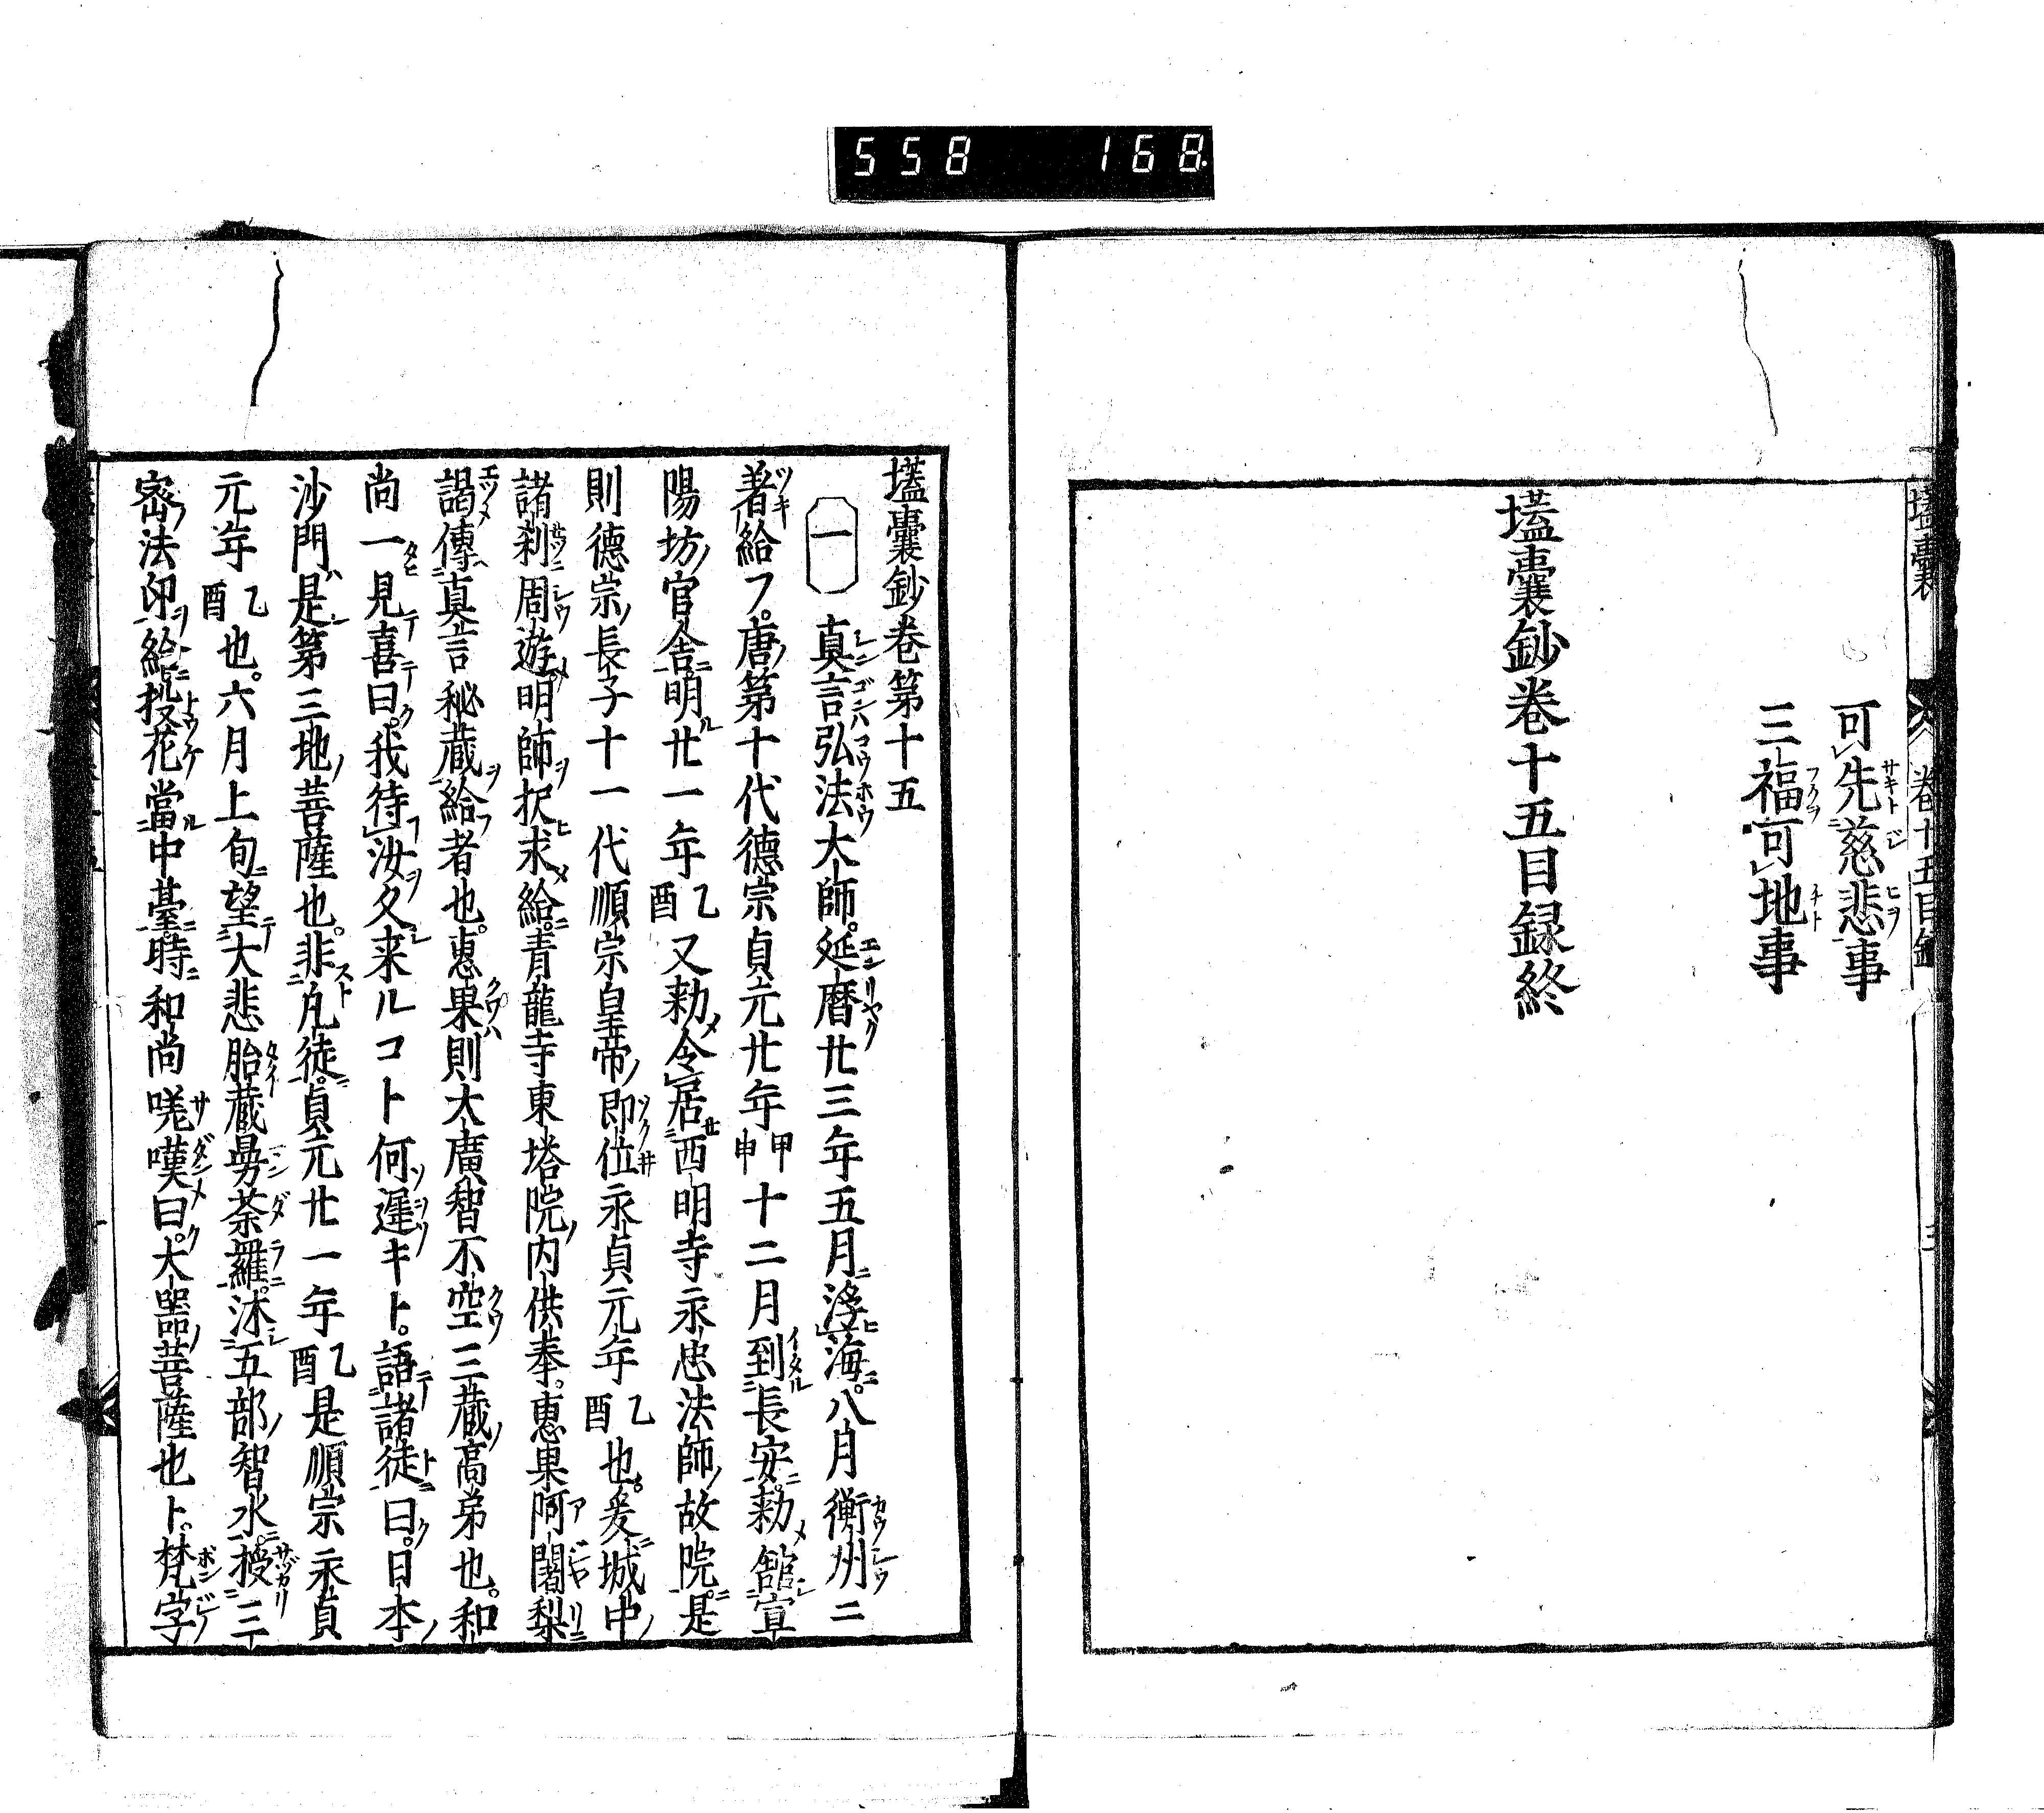 558 168.
可先慈悲事
三福可地事
壒囊鈔卷十五目録終
壒囊鈔卷第十五
一 真言弘法大師。延暦廿三年五月浮海。八月衡州ニ
着給フ。唐第十代德宗貞元廿年甲申十二月到長安。勅舘宣
陽坊ノ官舎。明ル廿一年乙酉又勅令居西明寺永忠法師ノ故院。是
則德宗ノ長子十一代順宗皇帝ノ即位永貞元年乙酉也。爰城中ノ
諸刹周遊。明師ヲ択求給。青龍寺東塔院ノ内供奉。惠果阿闍梨
謁。傳真言秘蔵ヲ給フ者也。惠果則大廣智不空三蔵ノ高弟也。和
尚一見喜曰。我待汝久。来ルコト何遅キト。語諸徒曰。日本ノ
沙門是第三地ノ菩薩也。非凡徒。貞元廿一年乙酉是順宗永貞
元年乙酉也。六月上旬望大悲胎蔵曼荼羅。沐五部ノ智水。授三
密ノ法印ヲ給。投花當中臺。時和尚咲嘆曰。大器ノ菩薩也ト。梵字